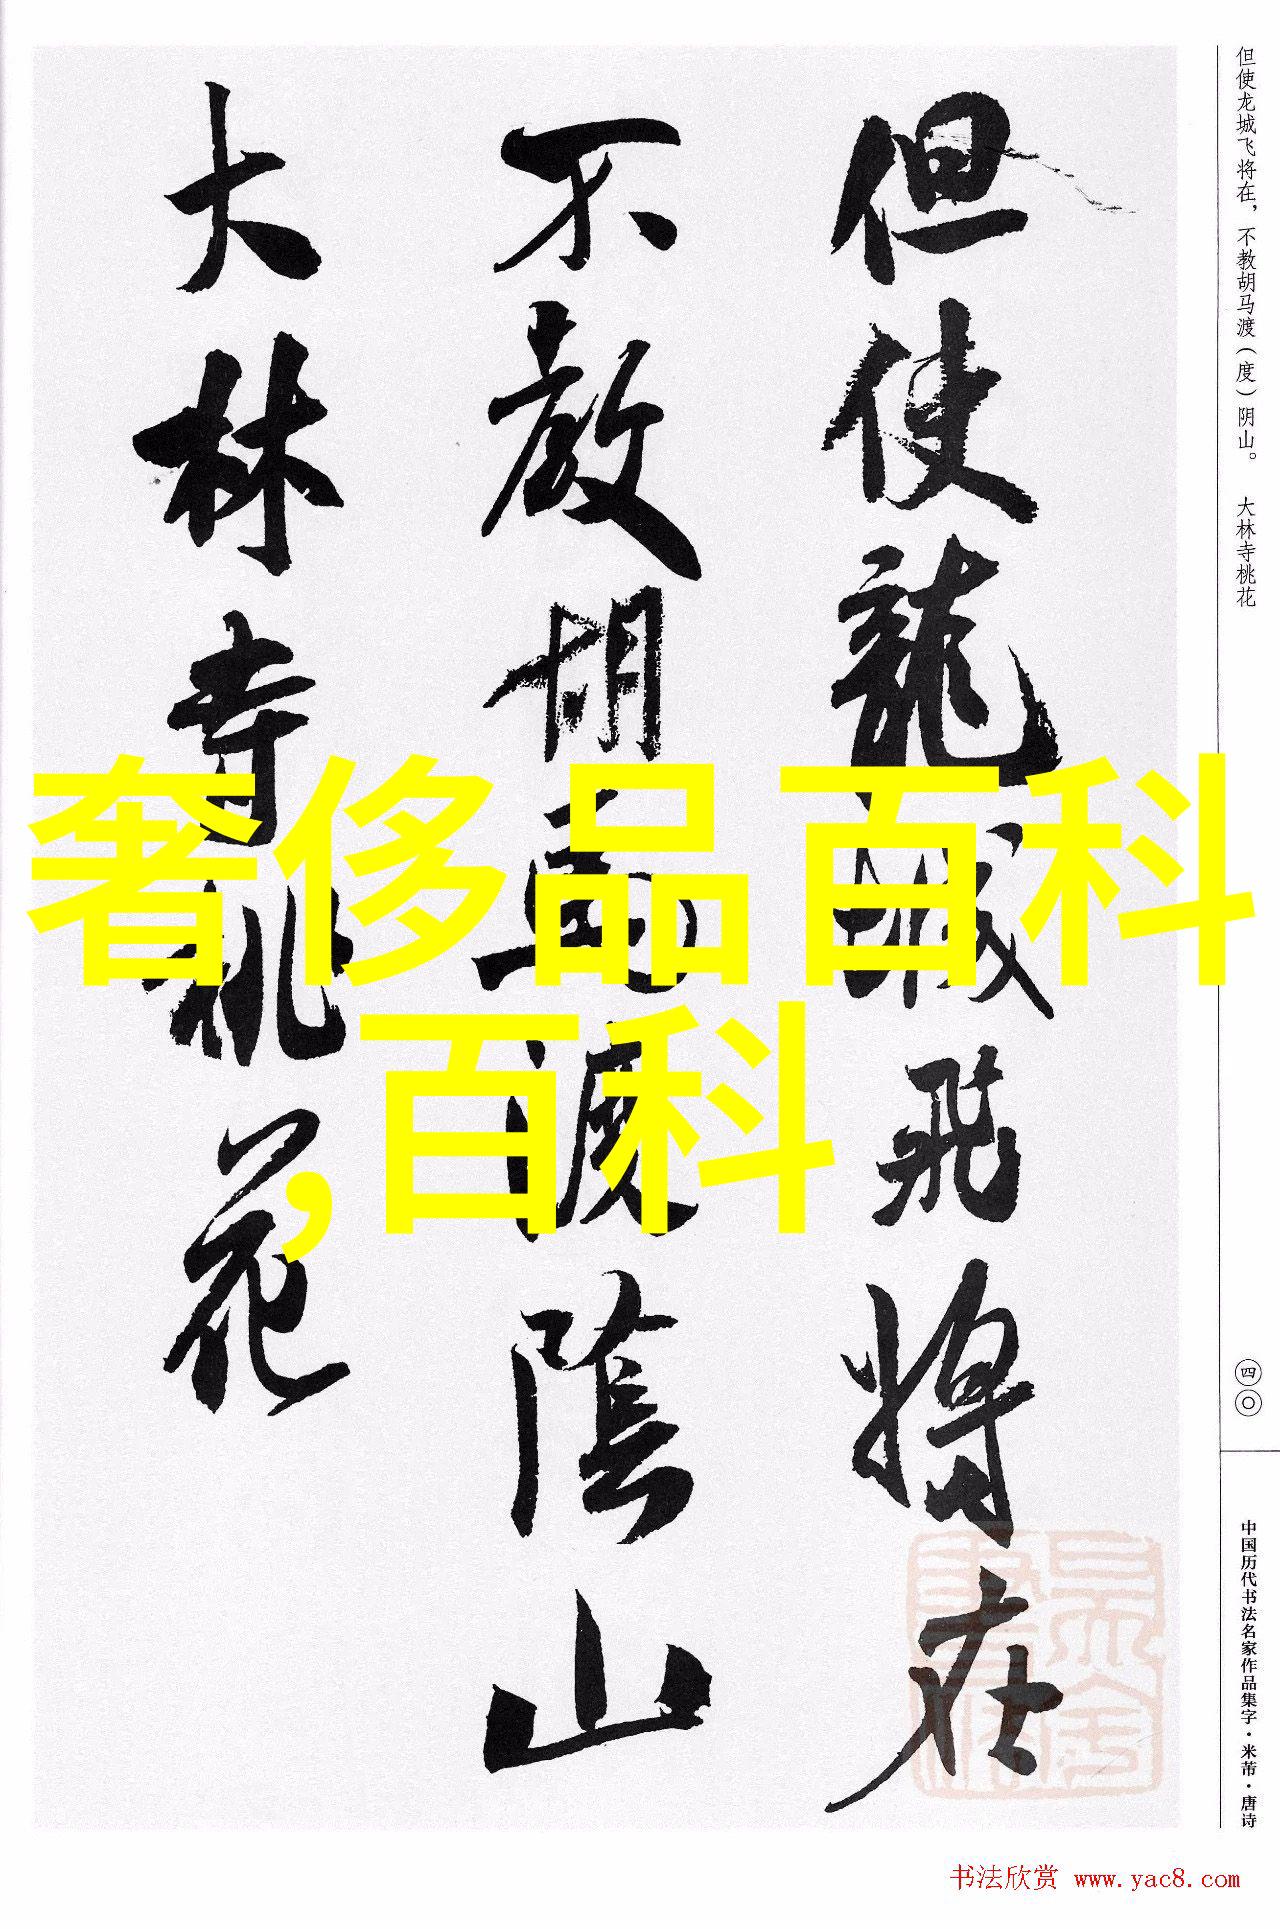 但使龍城飛將在
不教胡馬渡陰山
大林寺桃花
奢侈品百科
,百科
但使龙城飞将在，不教胡马渡（度）阴山。 大林寺桃花
四〇
中国历代书法名家作品集字·米芾·唐诗
书法欣赏 www.yac8.com